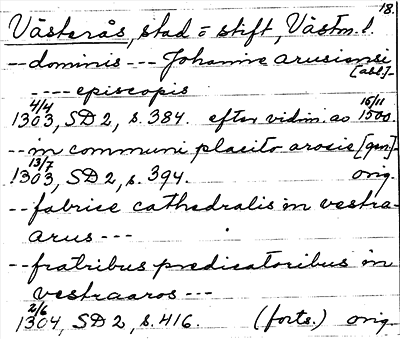 18.
Västerås, stad o stift, Västm. l.
-- dominis --- Johanne arusiensi [abl.]-
---- episcopis
4/4 1303, SD 2, s. 384. efter vidim. av 15/11 1500.
-- in communi placito arosie [gen]-
13/7 1303, SD 2, s. 394. orig.
-- fabrice cathedralis in vestra-
arus ---
-- fratribus predicatoribus in
vestraaros ---
2/6 1304, SD 2, s. 416. (forts.) orig.